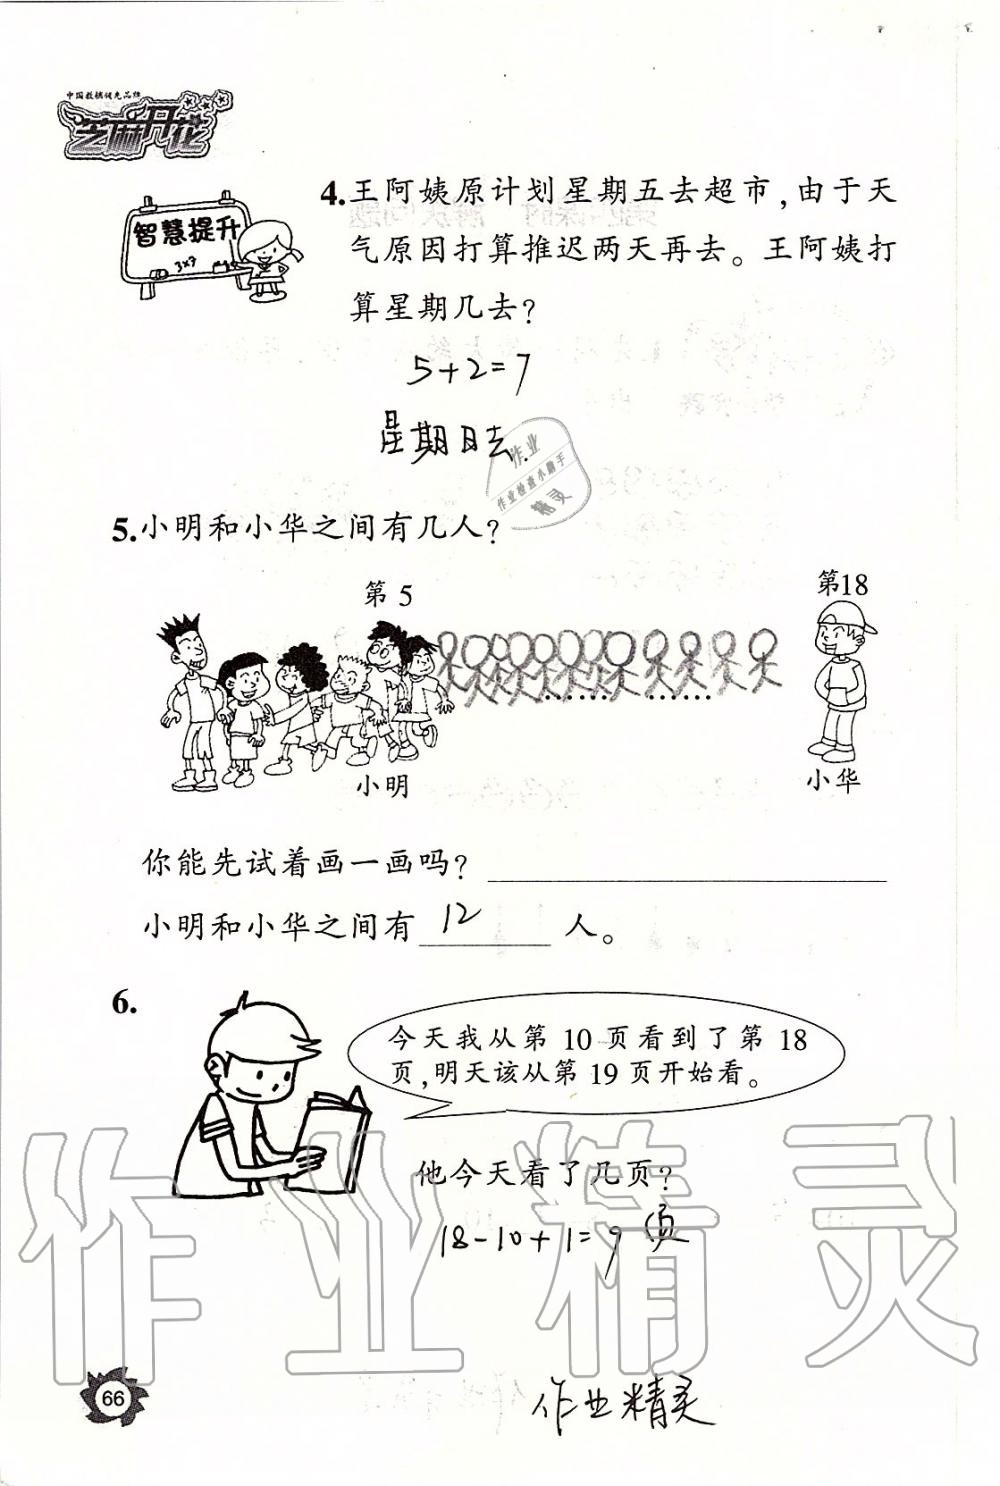 中国教辅领先品牌
芝麻开花
智慧提升
3×7
4.王阿姨原计划星期五去超市,由于天
气原因打算推迟两天再去。王阿姨打
算星期几去?
5+2=7
星期日去.
作业
作业检查小助手
精灵
5.小明和小华之间有几人?
第 5
第18
小明
小华
你能先试着画一画吗?
小明和小华之间有 12 人。
6.
今天我从第 10 页看到了第 18
页,明天该从第 19 页开始看。
他今天看了几页?
18-10+1=9 页
作业精灵
作业精灵
66